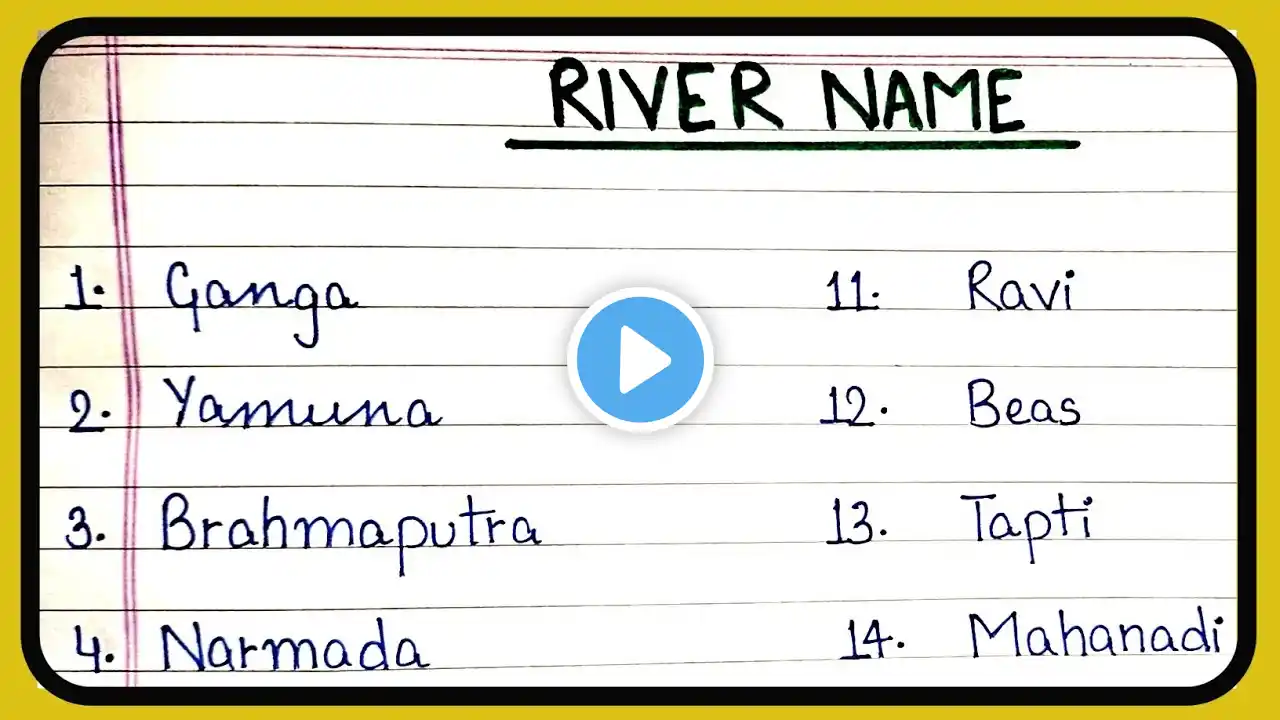 RIVER NAME
1. Ganga
2. Yamuna
3. Brahmaputra
4. Narmada
11. Ravi
12. Beas
13. Tapti
14. Mahanadi